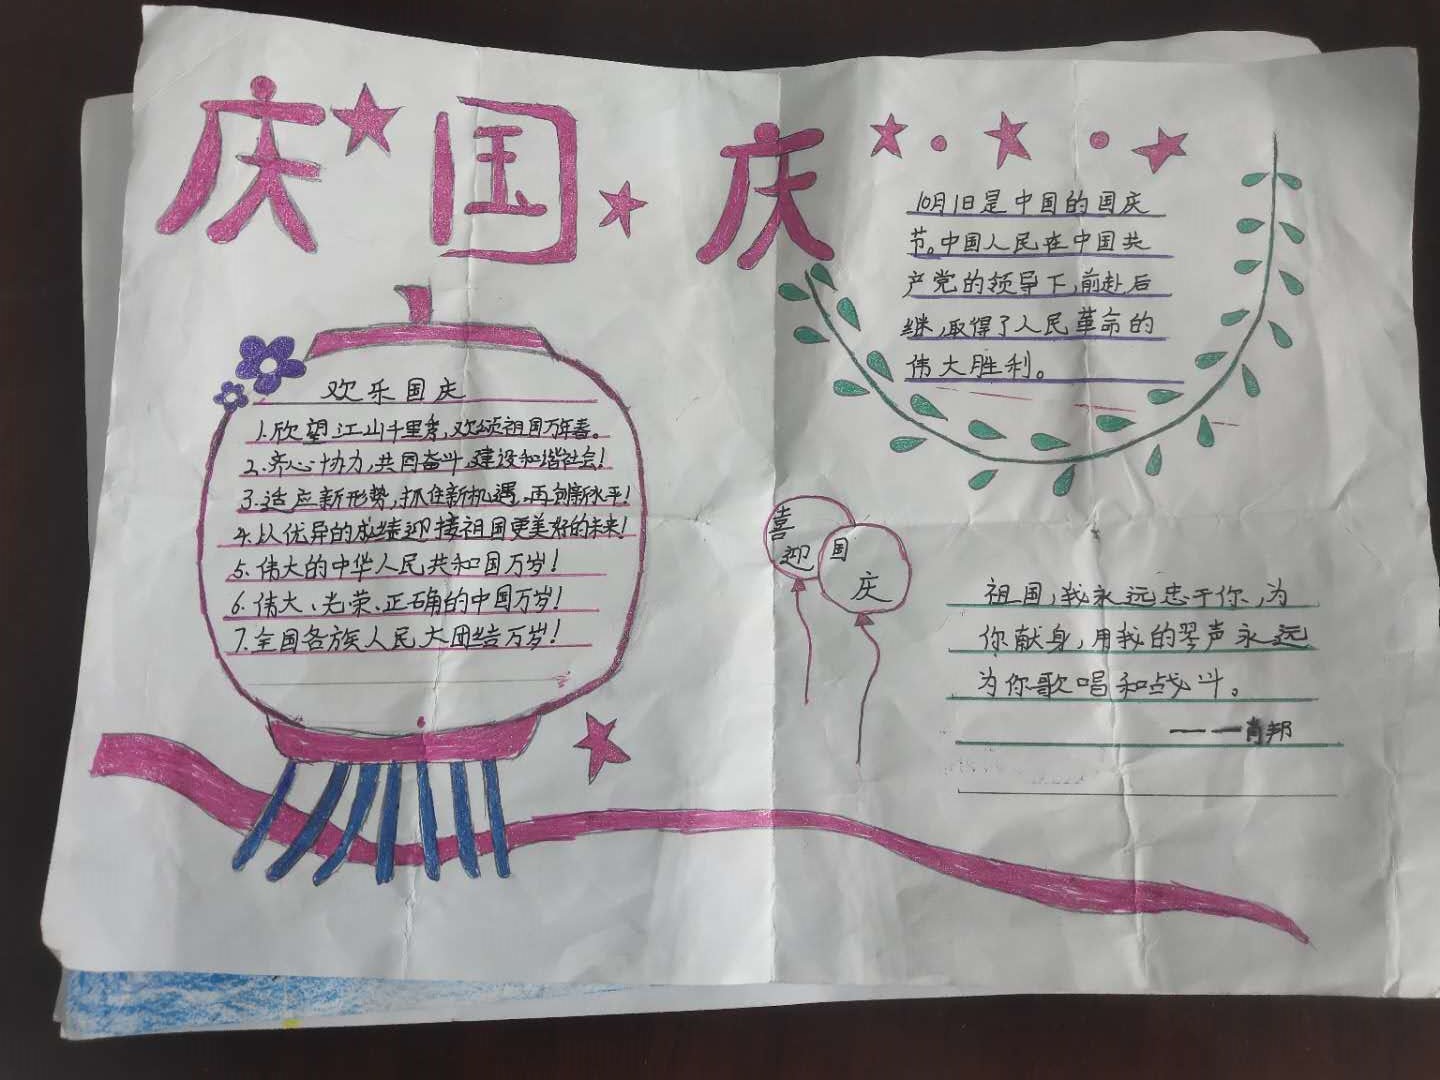 庆国庆
欢乐国庆
1.欣望江山千里秀,欢颂祖国万年春。
2.齐心协力,共同奋斗,建设和谐社会!
3.适应新形势,抓住新机遇,再创新水平!
4.以优异的成绩迎接祖国更美好的未来!
5.伟大的中华人民共和国万岁!
6.伟大、光荣、正确的中国万岁!
7.全国各族人民大团结万岁!
10月1日是中国的国庆
节。中国人民在中国共
产党的领导下,前赴后
继,取得了人民革命的
伟大胜利。
喜迎
国庆
祖国,我永远忠于你,为
你献身,用我的琴声永远
为你歌唱和战斗。
——肖邦